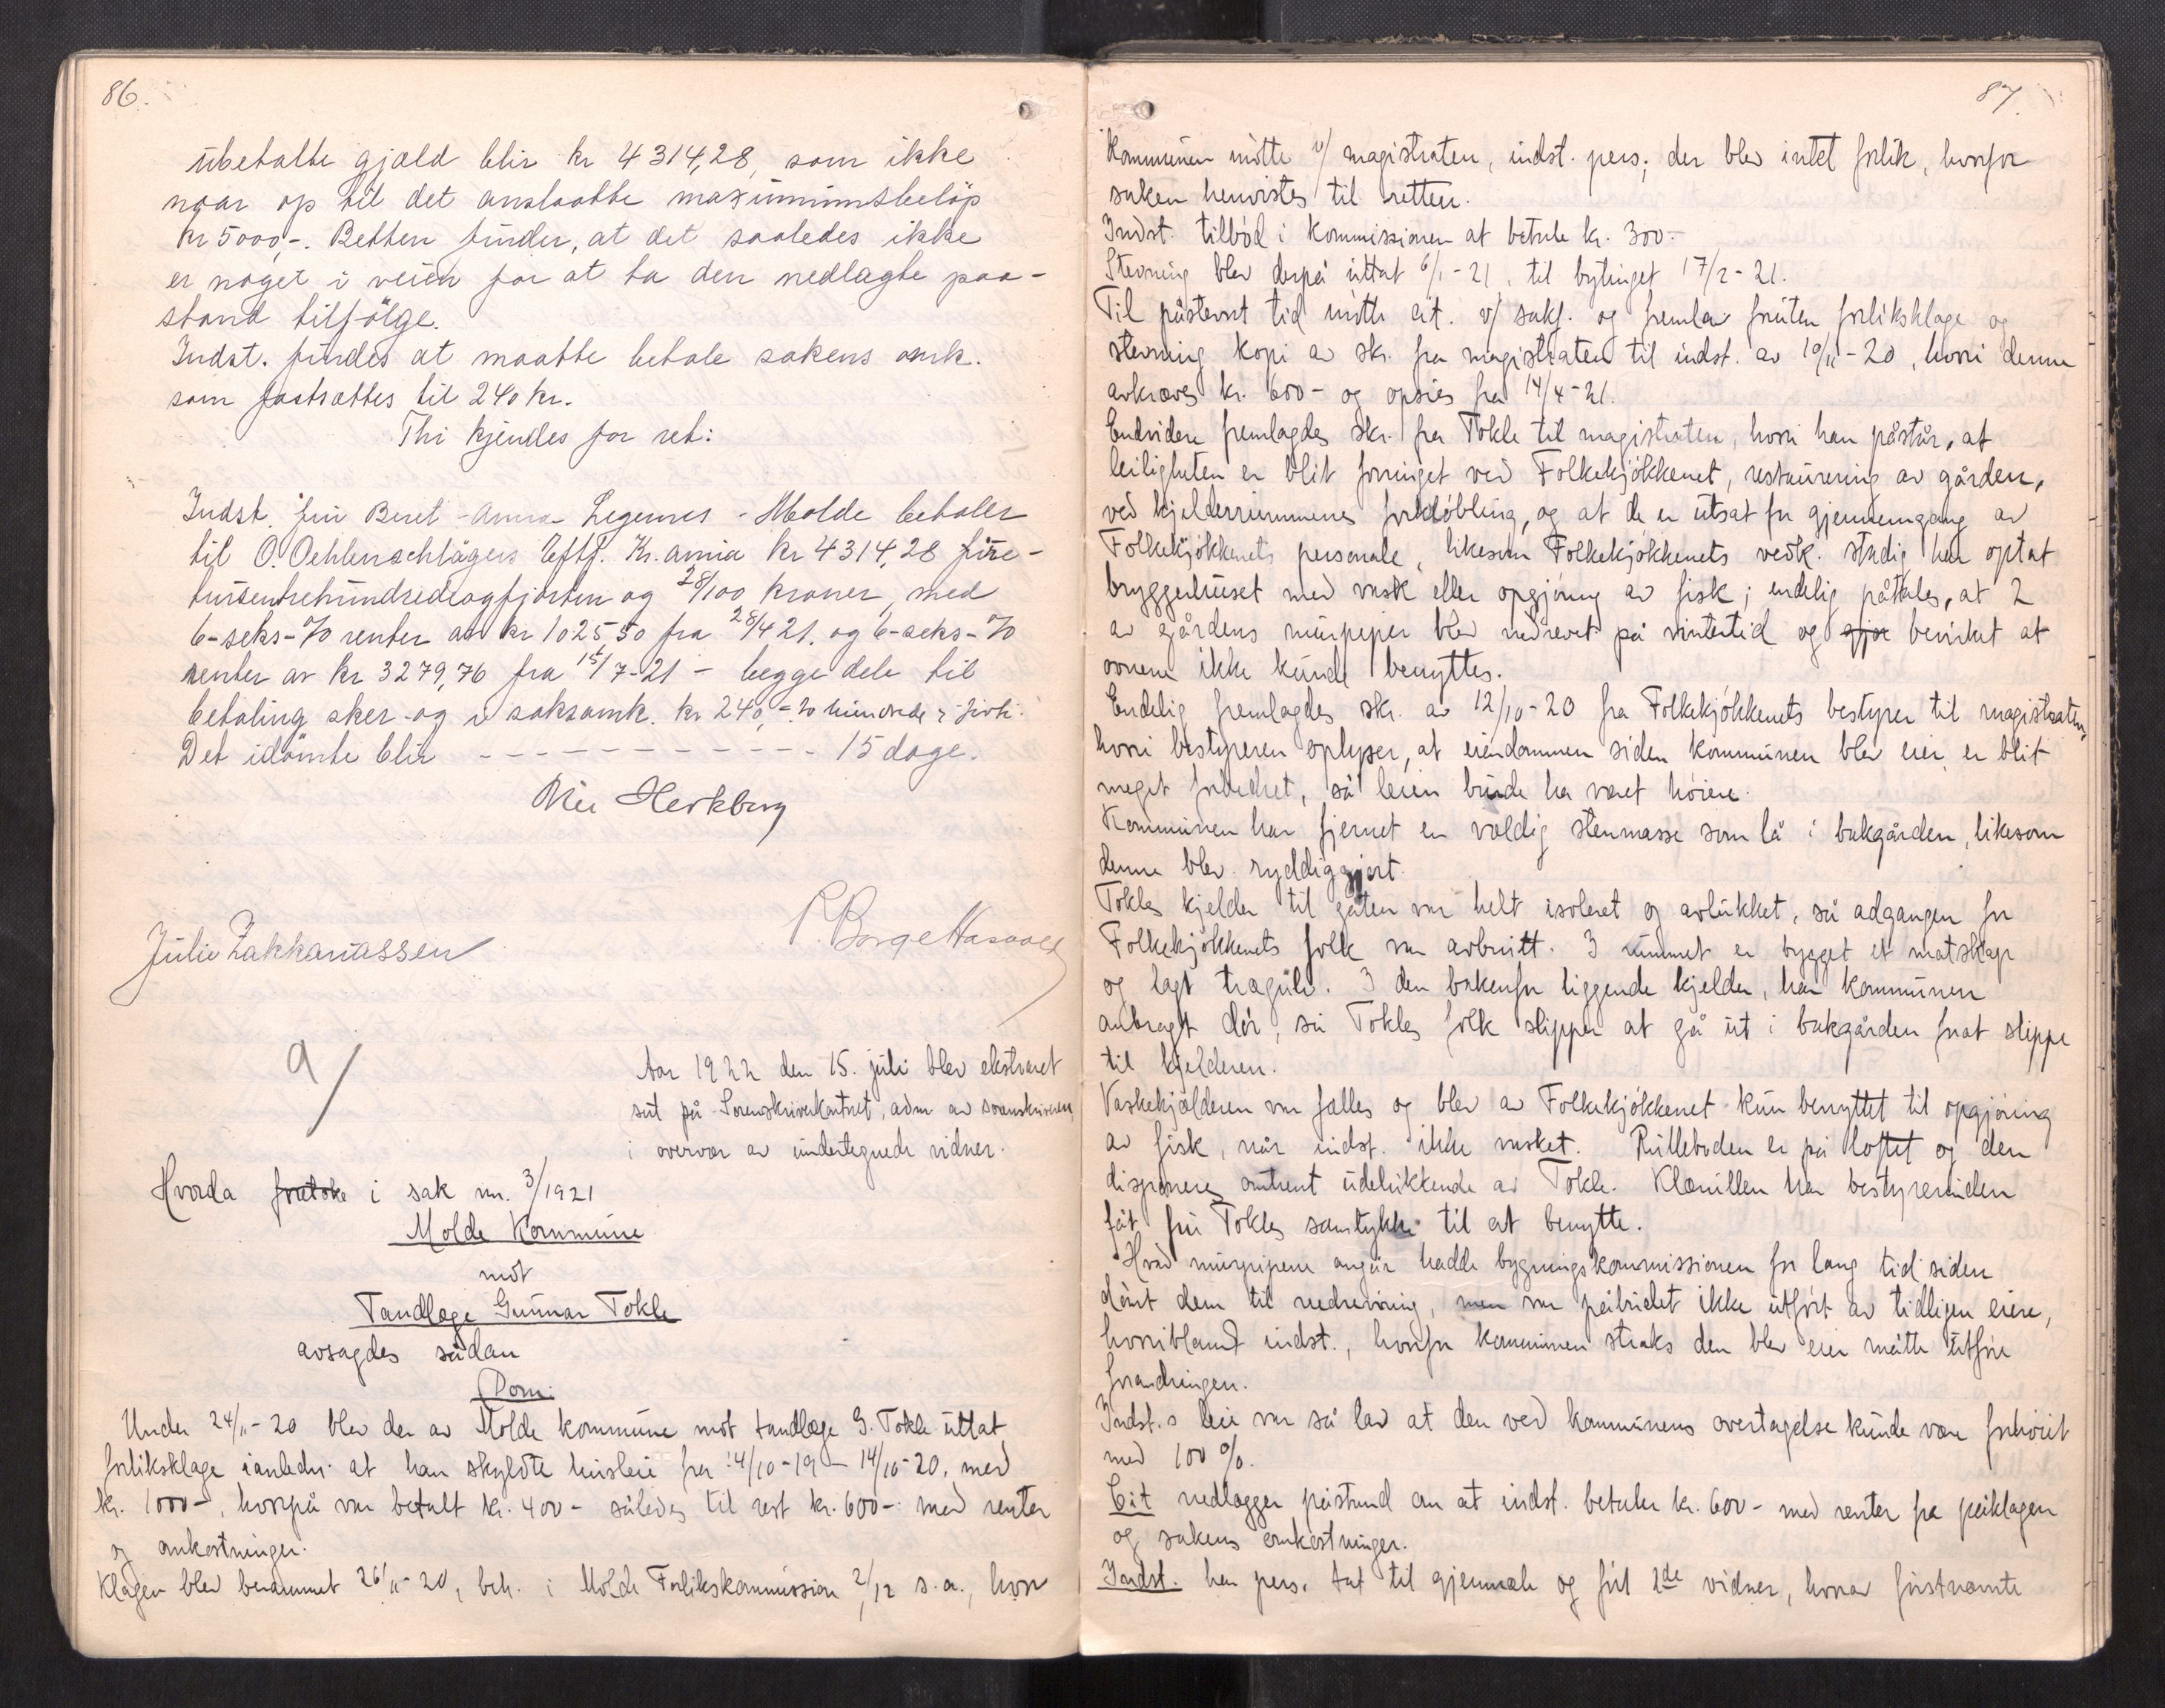 86.
ubetalte gjæld blir kr 4314,28, som ikke
naar op til det anslaatte maximumsbeløp
kr 5000,-. Retten finder, at det saaledes ikke
er noget i veien for at ta den nedlagte paa-
stand tilfølge.
Indst. findes at maatte betale sakens omk.
som fastsættes til 240 kr.
Thi kjendes for ret:
Indst. fru Beret-Anna Legernes - Molde betaler
til O. Oehlenschlägers Eftf. Kr.ania kr 4314,28 fire-
tusentrehundredeogfjorten og 28/100 kroner, med
6-seks-% renter av kr 1025,50 fra 28/4 21. og 6-seks-%
renter av kr 3279,76 fra 15/7-21 - begge dele til
betaling sker og i saksomk. kr 240,- to hundrede &
Det idømte blir - - - - - - - - - - 15 dage.
Julie Zakkariassen
9/
Aar 1922 den 15. juli blev ekstraret
sat på Sorenskriverkontoret, adm av sorenskriveren,
i overvær av undertegnede vidner.
Hvorda foretoke i sak nr. 3/1921
Molde Kommune
mot
Tandlæge Gunnar Tokle
avsagdes sådan
Dom:
Under 24/11-20 blev der av Molde kommune mot tandlæge G. Tokle uttat
forliksklage ianledn. at han skyldte husleie fra 14/10-19 - 14/10-20, med
kr. 1000-, hvorpå var betalt kr. 400- således til rest kr. 600- med renter
og omkostninger.
Klagen blev berammet 26/11-20, beh. i Molde Forlikskommission 2/12 s.a., hvor
87.
kommunen møtte v/ magistraten, indst. pers; der blev intet forlik, hvorfor
saken henvistes til retten.
Indst. tilbød i kommissionen at betale kr. 300.-
Stevning blev derpå uttat 6/1-21, til bytinget 17/2-21.
Til påstevnt tid møtte cit. v/ sakf. og fremla foruten forliksklage og
stevning kopi av skr. fra magistraten til indst. av 10/11-20, hvori denne
avkræves kr. 600- og opsies fra 14/4-21.
Endvidere fremlagdes skr. fra Tokle til magistraten, hvori han påstår, at
leiligheten er blit forringet ved Folkekjøkkenet, restaurering av gården,
ved kjelderrummenes forkløbling, og at de er utsat for gjennemgang av
Folkekjøkkenets personale, likesom Folkekjøkkenets vedk. stadig har optat
bryggerhuset med vask eller opgjøring av fisk; endelig påtales, at 2
av gårdens murpiper blev nedrevet på vintertid og gjor bevirket at
ovnene ikke kunde benyttes.
Endelig fremlagdes skr. av 12/10-20 fra Folkekjøkkenets bestyrer til magistraten,
hvori bestyreren oplyser, at eiendommen siden kommunen blev eier, er blit
meget forbedret, så leien burde ha været høiere.
Kommunen har fjernet en vældig stenmasse som lå i bakgården, likesom
denne blev ryddiggjort.
Tokles kjelder til gaten var helt isoleret og avlukket, så adgangen for
Folkekjøkkenets folk var avbrutt. I rummet er bygget et matskap
og lagt trægulv. I den bakenfor liggende kjelder, har kommunen
anbragt dør, så Tokles folk slipper at gå ut i bakgården forat slippe
til kjelderen.
Vaskekjælderen var fælles og blev av Folkekjøkkenet kun benyttet til opgjøring
av fisk, når indst. ikke vasket. Rulleboden er på loftet og den
disponeres omtrent udelukkende av Tokle. Klærullen har bestyrerinden
fåt fru Tokles samtykke til at benytte.
Hvad murpipene angår hadde bygningskommissionen for lang tid siden
dømt dem til nedrivning, men var påbudet ikke utført av tidligere eiere,
hvoriblandt indst., hvorfor kommunen straks den blev eier måtte utføre
forandringen.
Indst.s leie var så lav at den ved kommunens overtagelse kunde være forhøiet
med 100 %.
Cit nedlægger påstand om at indst. betaler kr. 600- med renter fra påklagen
og sakens omkostninger.
Indst. har pers. tat til gjenmæle og ført 2de vidner, hvorav førstnævnte